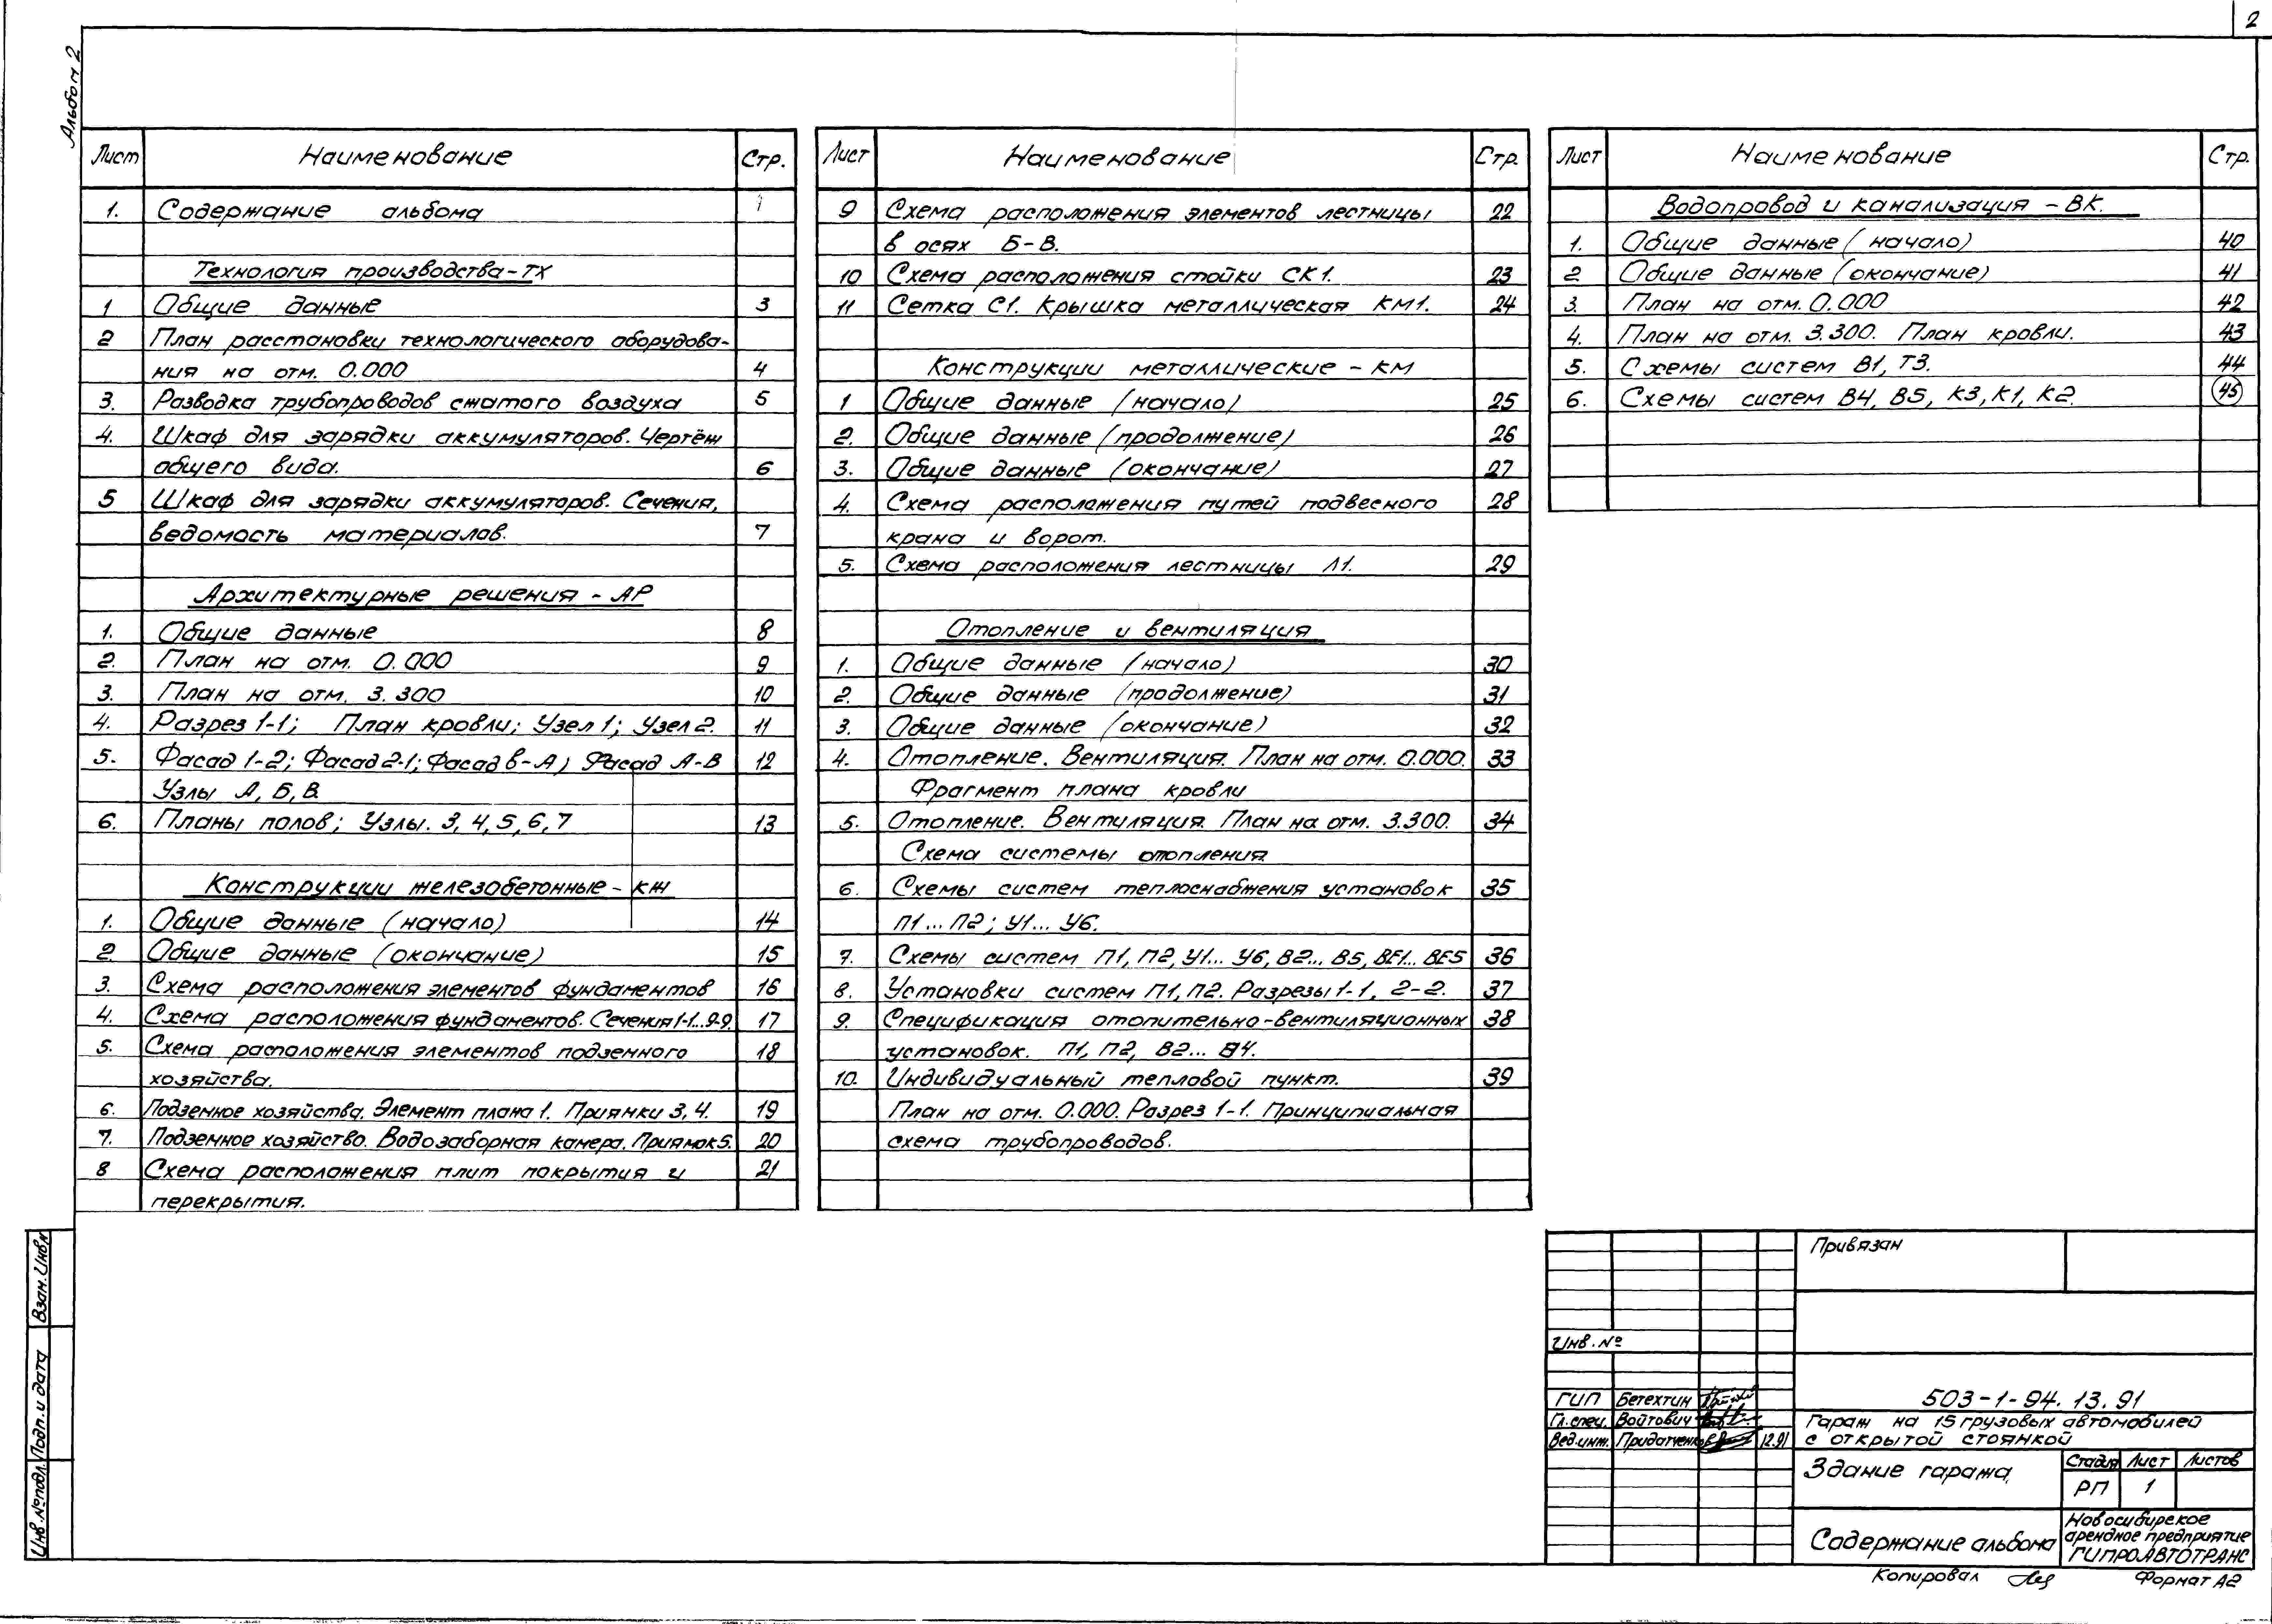 2
Альбом 2
Лист Наименование Стр.
1. Содержание альбома 1
Технология производства-ТХ
1 Общие данные 3
2 План расстановки технологического оборудова-
ния на отм. 0.000 4
3. Разводка трубопроводов сжатого воздуха 5
4. Шкаф для зарядки аккумуляторов. Чертёж
общего вида. 6
5 Шкаф для зарядки аккумуляторов. Сечения,
ведомость материалов. 7
Архитектурные решения - АР
1. Общие данные 8
2. План на отм. 0.000 9
3. План на отм. 3.300 10
4. Разрез 1-1; План кровли; Узел 1; Узел 2. 11
5. Фасад 1-2; Фасад 2-1; Фасад В-А; Фасад А-В 12
Узлы А, Б, В.
6. Планы полов; Узлы. 3, 4, 5, 6, 7 13
Конструкции железобетонные - КЖ
1. Общие данные (начало) 14
2. Общие данные (окончание) 15
3. Схема расположения элементов фундаментов 16
4. Схема расположения фундаментов. Сечения 1-1...9-9. 17
5. Схема расположения элементов подземного 18
хозяйства.
6. Подземное хозяйства. Элемент плана 1. Приямки 3, 4. 19
7. Подземное хозяйство. Водозаборная камера. Приямок 5. 20
8 Схема расположения плит покрытия и 21
перекрытия.
Лист Наименование Стр.
9 Схема расположения элементов лестницы 22
в осях Б-В.
10 Схема расположения стойки СК1. 23
11 Сетка С1. Крышка металлическая КМ1. 24
Конструкции металлические - КМ
1 Общие данные (начало) 25
2. Общие данные (продолжение) 26
3. Общие данные (окончание) 27
4. Схема расположения путей подвесного 28
крана и ворот.
5. Схема расположения лестницы Л1. 29
Отопление и вентиляция
1. Общие данные (начало) 30
2. Общие данные (продолжение) 31
3. Общие данные (окончание) 32
4. Отопление. Вентиляция. План на отм. 0.000. 33
Фрагмент плана кровли
5. Отопление. Вентиляция. План на отм. 3.300. 34
Схема системы отопления
6. Схемы систем теплоснабжения установок 35
П1... П2; У1... У6.
7. Схемы систем П1, П2, У1... У6, В2... В5, ВЕ1... ВЕ5 36
8. Установки систем П1, П2. Разрезы 1-1, 2-2. 37
9. Спецификация отопительно-вентиляционных 38
установок. П1, П2, В2... В4.
10. Индивидуальный тепловой пункт. 39
План на отм. 0.000. Разрез 1-1. Принципиальная
схема трубопроводов.
Лист Наименование Стр.
Водопровод и канализация - ВК.
1. Общие данные (начало) 40
2 Общие данные (окончание) 41
3. План на отм. 0.000 42
4. План на отм. 3.300. План кровли. 43
5. Схемы систем В1, Т3. 44
6. Схемы систем В4, В5, К3, К1, К2. 45
Взам. Инв.№
Подп. и дата
Инв. № подл.
Привязан
Инв. №
ГИП Бетехтин
Гл. спец. Войтович
Вед. инж. Придатченков 12.91
503-1-94. 13. 91
Гараж на 15 грузовых автомобилей
с открытой стоянкой
Здание гаража
Стадия Лист Листов
РП 1
Содержание альбома
Новосибирское
арендное предприятие
ГИПРОАВТОТРАНС
Копировал Формат А2